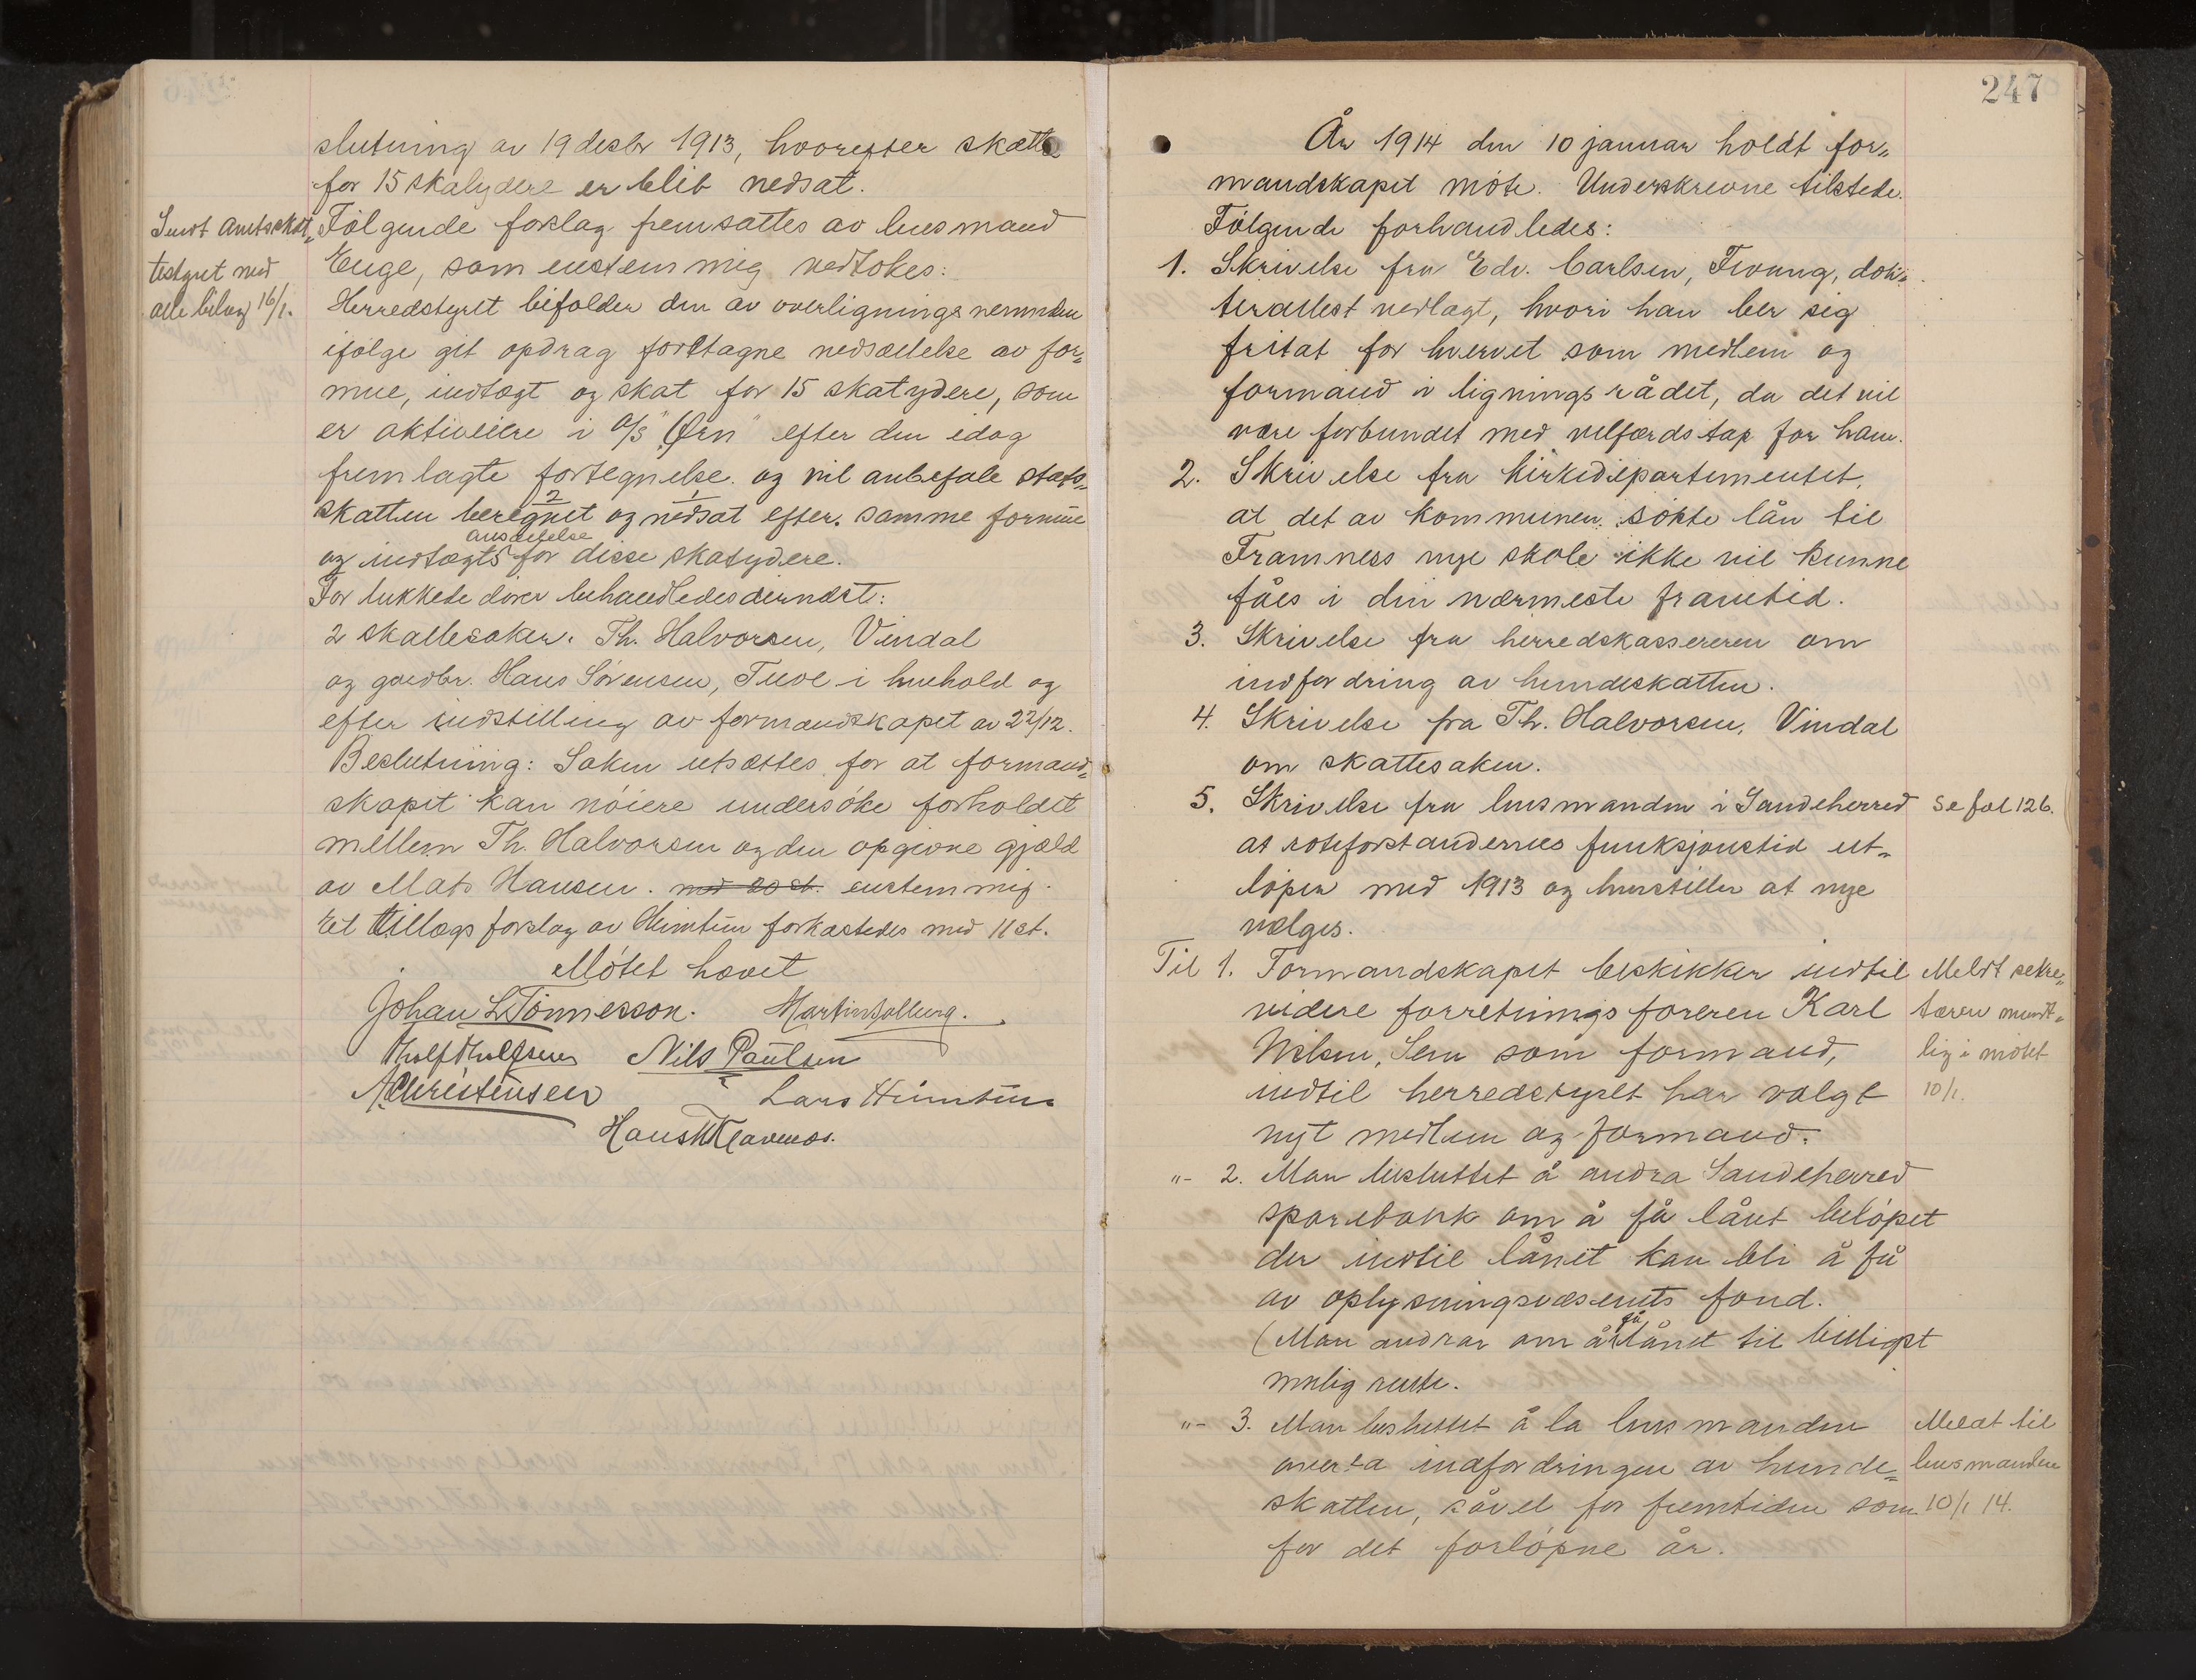 slutning av 19 desbr 1913, hvorefter skatte
for 15 skatydere er blit nedsat.
Sendt Amtsskat„
testyret med
alle bilag 16/1.
Følgende forslag fremsattes av lensmand
Enge, som enstemmig vedtokes:
Herredstyret bifalder den av overligningsnemnden
ifølge git opdrag foretagne nedsættelse av for„
mue, indtægt og skat for 15 skatydere, som
er aktieeiere i A/S "Ørn" efter den idag
fremlagte fortegnelse og vil anbefale stats„
skatten beregnet 2 og nedsat 1 efter samme formue
ansættelse
og indtægts for disse skatydere.
For lukkede dører behandledes dernæst:
2 skattesaker. Th. Halvorsen, Vindal
og gardbr. Hans Sørensen, Tuve i henhold og
efter indstilling av formandskapet av 22/12.
Beslutning: Saken utsættes for at formand„
skapet kan nøiere undersøke forholdet
mellem Th. Halvorsen og den opgivne gjæld
av Mats Hansen. med 20 st. enstemmig.
Et tillægsforslag av Heimtun forkastedes med 11 st.
Møtet hævet
Johan L Tønnesson. Martin Solberg.
Tholf Tholfsen Nils Paulsen
A Christensen Lars Heimtun
Hans K Klavenes.
247
År 1914 den 10 januar holdt for„
mandskapet møte. Underskrevne tilstede.
Følgende forhandledes:
1. Skrivelse fra Edv. Carlsen, Fevang, dok„
terattest vedlagt, hvori han ber sig
fritat for hvervet som medlem og
formand i ligningsrådet, da det vil
være forbundet med velfærdstap for ham.
2. Skrivelse fra kirkedepartementet,
at det av kommunen søkte lån til
Framness nye skole ikke vil kunne
fåes i den nærmeste framtid.
3. Skrivelse fra herredskassereren om
indfordring av hundeskatten.
4. Skrivelse fra Th. Halvorsen, Vindal
om skattesaken.
5. Skrivelse fra lensmanden i Sandeherred
Se fol 126.
at roteforstandernes funksjonstid ut„
løper med 1913 og henstiller at nye
vælges.
Til 1. Formandskapet beskikker indtil
videre forretningsføreren Karl
Nilsen, Sem som formand,
indtil herredstyret har valgt
nyt medlem og formand.
Meldt sekre„
tæren mundt„
lig i møtet
10/1.
"- 2. Man besluttet å andra Sandeherred
sparebank om å få lånt beløpet
der indtil lånet kan bli å få
av oplysningsvæsenets fond.
(Man andrar om å få lånet til billigst
mulig rente.
"- 3. Man besluttet å la lensmanden
overta indfordringen av hunde„
skatten, såvel for fremtiden som
for det forløpne år.
Meldt til
lensmanden
10/1 14.